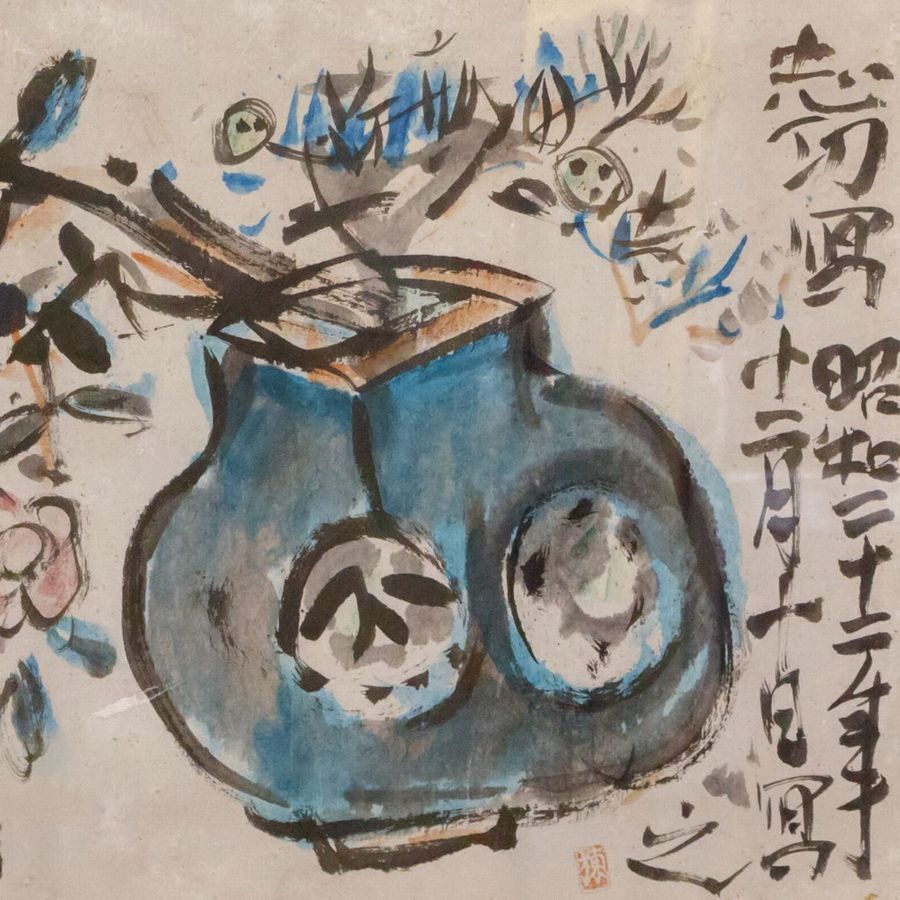 志功寫
昭和二十二年
十二月十日寫
之
棟